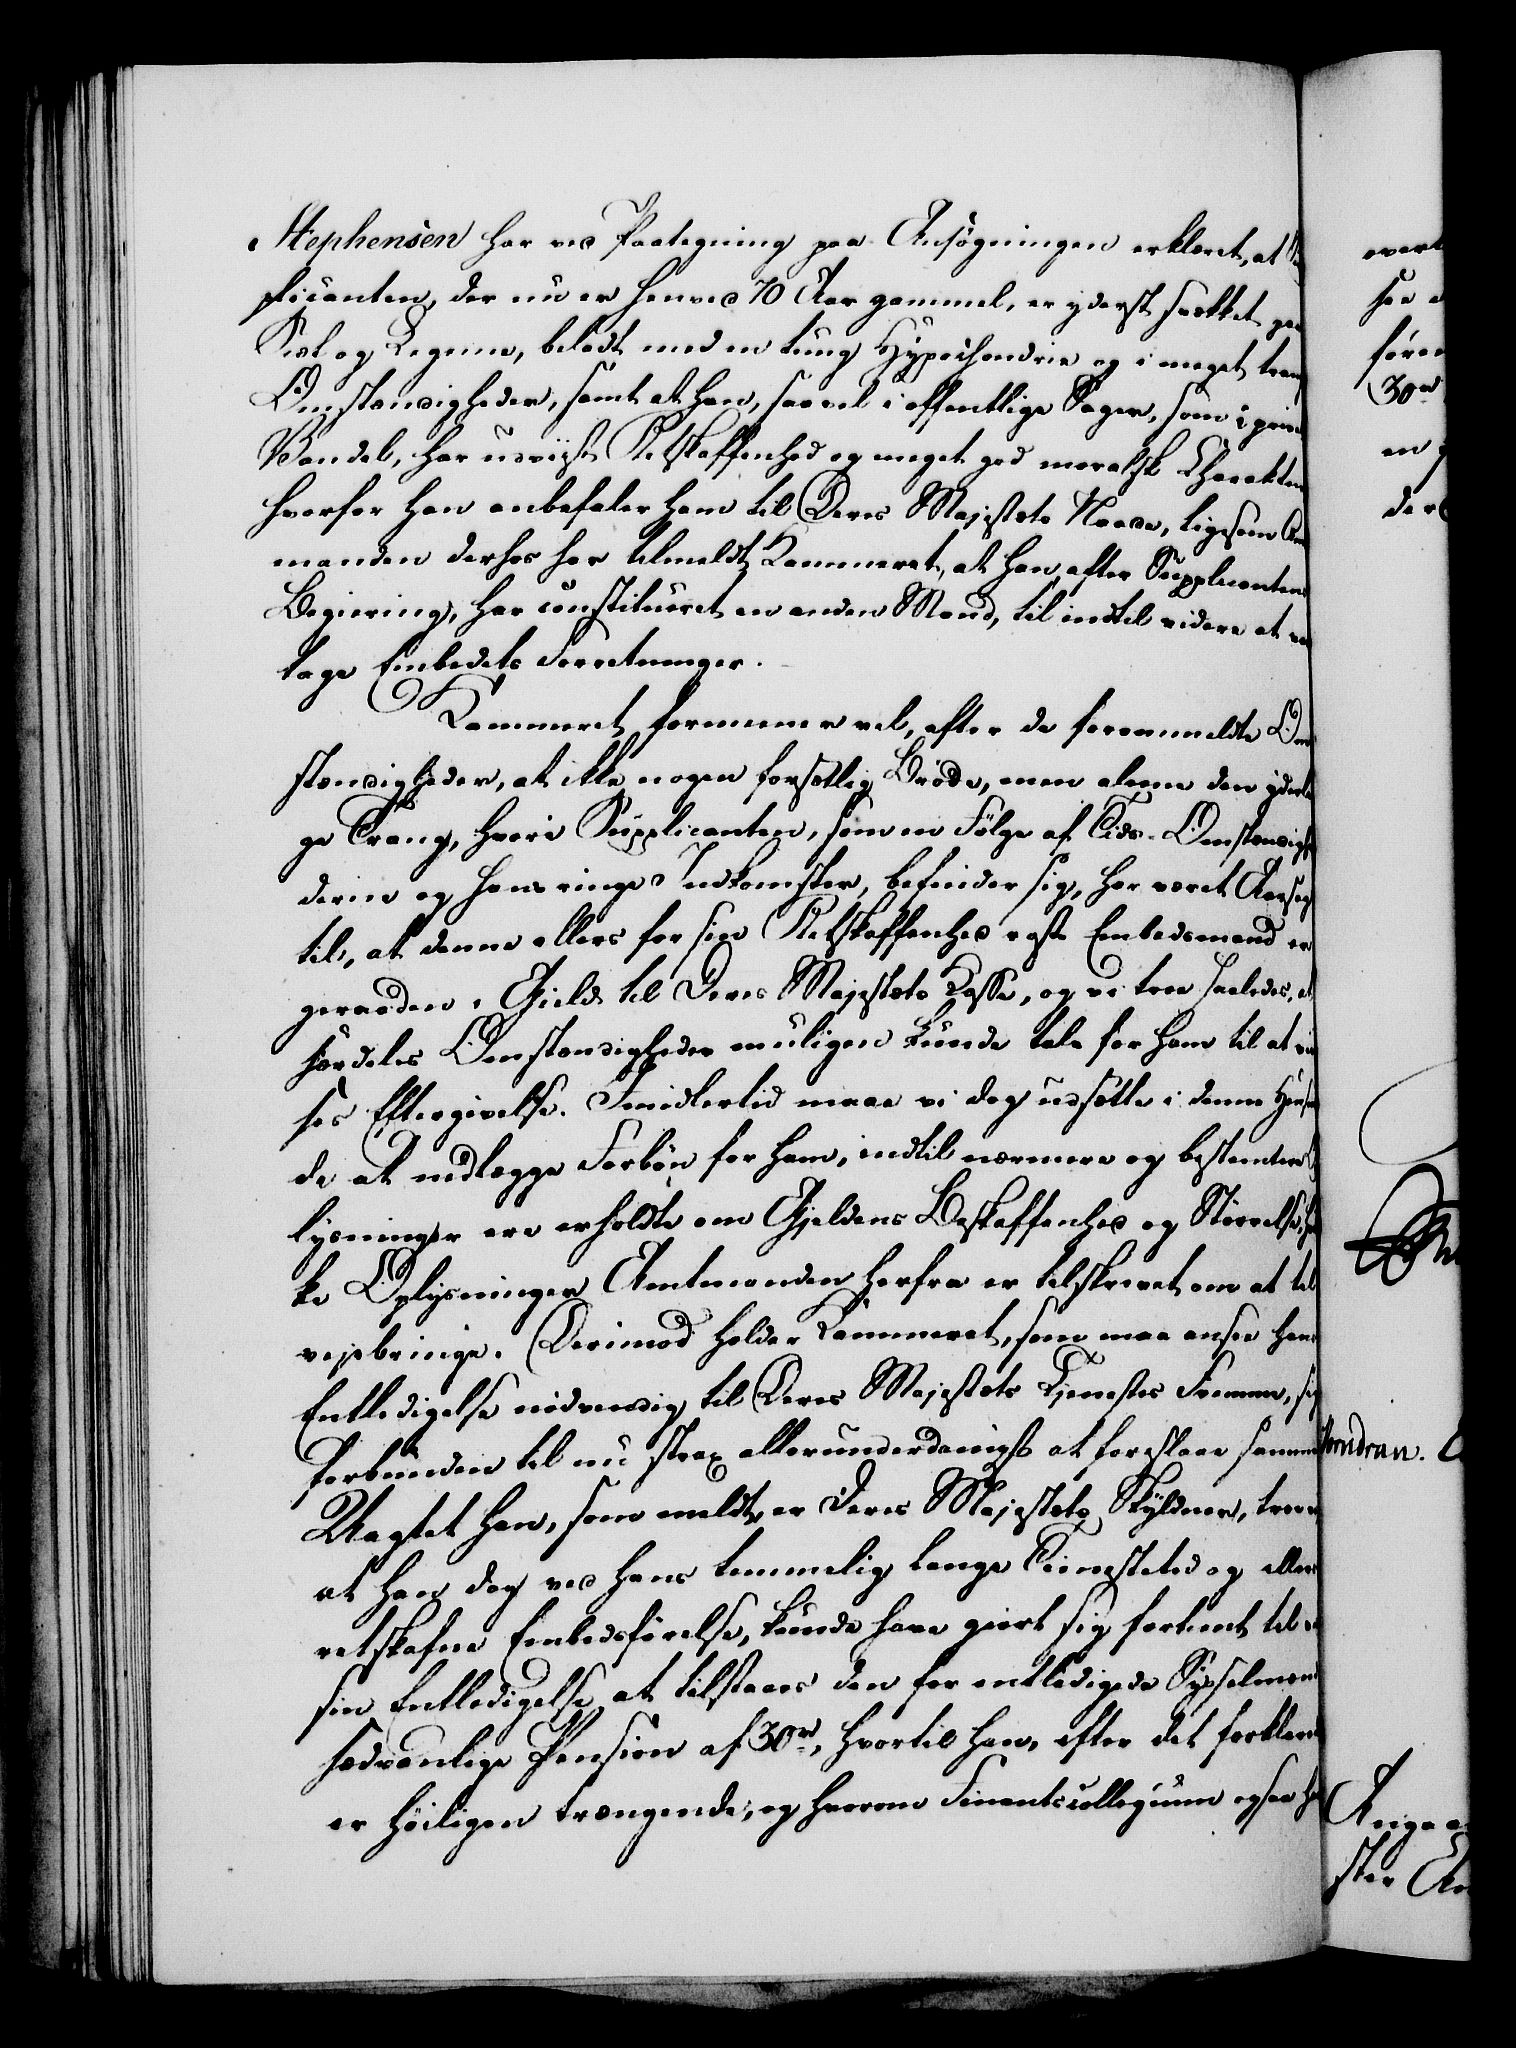 Stephensen har ved Paategning paa Ansøgningen erklæret, at Su
plicanten, der nu er henved 70 Aar gammel, er yderst svækket paa
Siæl og Legeme, beladt med en tung Hypochondrie og i meget trang
Omstændigheder, samt at han, saavel i offentlige Sager, som i privat
Vandel, har udviist Retskaffenhed og meget god moralsk Charakteer
hvorfor han anbefaler ham til Deres Majestæts Naade, ligesom Amt
manden derhos har tilmeldt Kammeret, at han, efter Supplicantens
Begiering, har constitueret en anden Mand, til indtil videre at va
tage Embedets Forretninger.
Kammeret formener vel, efter de foranmeldte Om
stændigheder, at ikke nogen forsætlig Brøde, men alene den yderli
ge Trang, hvori Supplicanten, som en Følge af Tids-Omstændighe
derne og hans ringe Indkomster, befinder sig, har været Aarsag
til, at denne ellers for sin Retskaffenhed roste Embedsmand er
geraaden i Gield til Deres Majestæts Kasse, og vi troe saaledes, at
særdeles Omstændigheder muligen kunde tale for ham til at vin
des Eftergivelse. Imidlertid maae vi dog udsætte i denne Hense
de at nedlægge Forbøn for ham, indtil nærmere og bestemtere O
lysninger ere erholdte om Gjeldens Beskaffenhed og Størrelse, hvil
ke Oplysninger Amtmanden herfra er tilskrevet om at til
vejebringe. Derimod holder Kammeret, som maa ansee hans
Entledigelse nødvendig til Deres Majestæts Tjenestes Fremme, sig
forbunden til nu strax allerunderdanigst at foreslaae samme
Uagtet han, som meldt, er Deres Majestæts Skyldner, troer
at han dog ved hans temmelig lange Tienestetid og ellers
retskafne Embedsførelse, kunde have giort sig fortient til ve
sin Entledigelse at tilstaaes den for entledigede Sysselmænd
sædvanlige Pension af 30 rd, hvortil han, efter det forklarede
er høiligen trængende; og hvorom Finantscollegium ogsaa ha